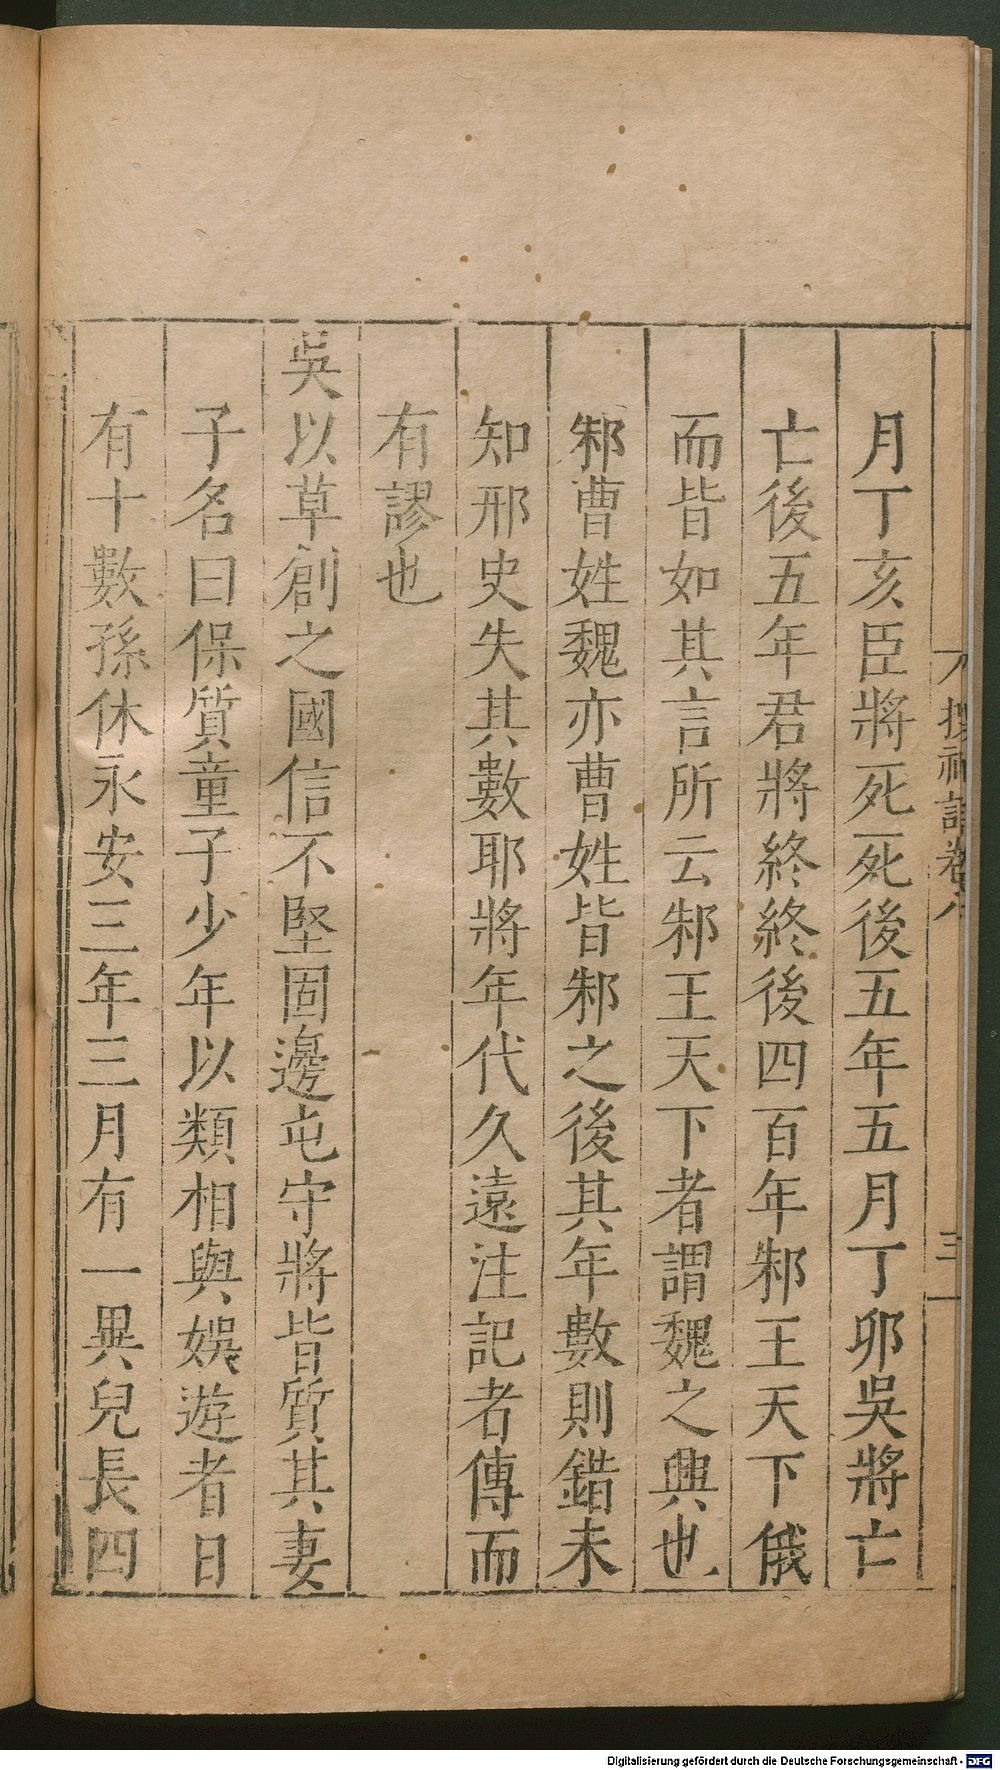 搜神記卷八
三
月丁亥臣將死死後五年五月丁卯吳將亡
亡後五年君將終終後四百年邾王天下俄
而皆如其言所云邾王天下者謂魏之興也
邾曹姓魏亦曹姓皆邾之後其年數則錯未
知邢史失其數耶將年代久遠注記者傳而
有謬也
吳以草創之國信不堅固邊屯守將皆質其妻
子名曰保質童子少年以類相與娛遊者日
有十數孫休永安三年三月有一異兒長四
Digitalisierung gefördert durch die Deutsche Forschungsgemeinschaft - DFG